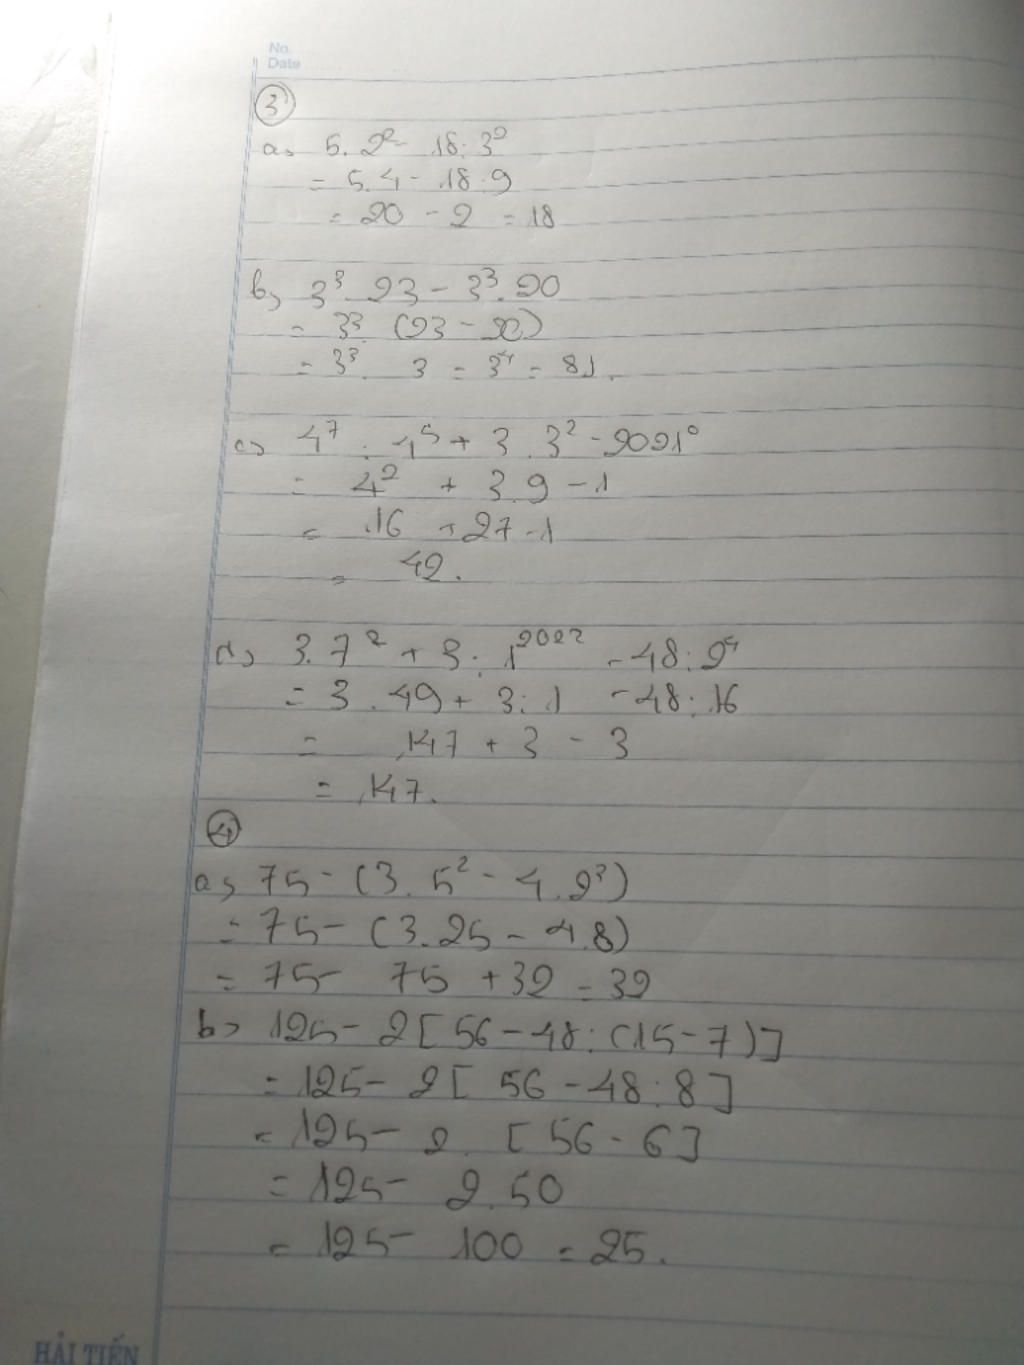 No.
Date
3
a, 5.2² - 18:3²
= 5.4 - 18:9
= 20 - 2 = 18
b, 3³.23 - 3³.20
= 3³.(23 - 20)
= 3³. 3 = 3⁴ = 81.
c, 4⁷ : 4⁵ + 3.3² - 2021⁰
= 4² + 3.9 - 1
= 16 + 27 - 1
= 42.
d, 3.7² + 3:1²⁰²² - 48:2⁴
= 3.49 + 3:1 - 48:16
= 147 + 3 - 3
= 147.
4
a, 75 - (3.5² - 4.2³)
= 75 - (3.25 - 4.8)
= 75 - 75 + 32 = 32
b, 125 - 2[56 - 48:(15 - 7)]
= 125 - 2[56 - 48:8]
= 125 - 2.[56 - 6]
= 125 - 2.50
= 125 - 100 = 25.
HẢI TIẾN